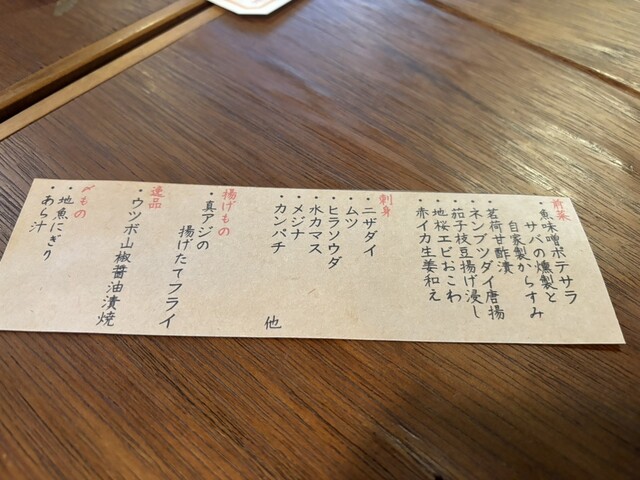 前菜
・魚味噌ポテサラ
サバの燻製と
自家製からすみ
・茗荷甘酢漬
・ネンブツダイ唐揚
・茄子枝豆揚げ浸し
・地桜エビおこわ
・赤イカ生姜和え
刺身
・ニザダイ
・ムツ
・ヒラソウダ
・水カマス
・メジナ
・カンパチ
他
揚げもの
・真アジの
揚げたてフライ
逸品
・ウツボ山椒醤油漬焼
〆もの
・地魚にぎり
・あら汁